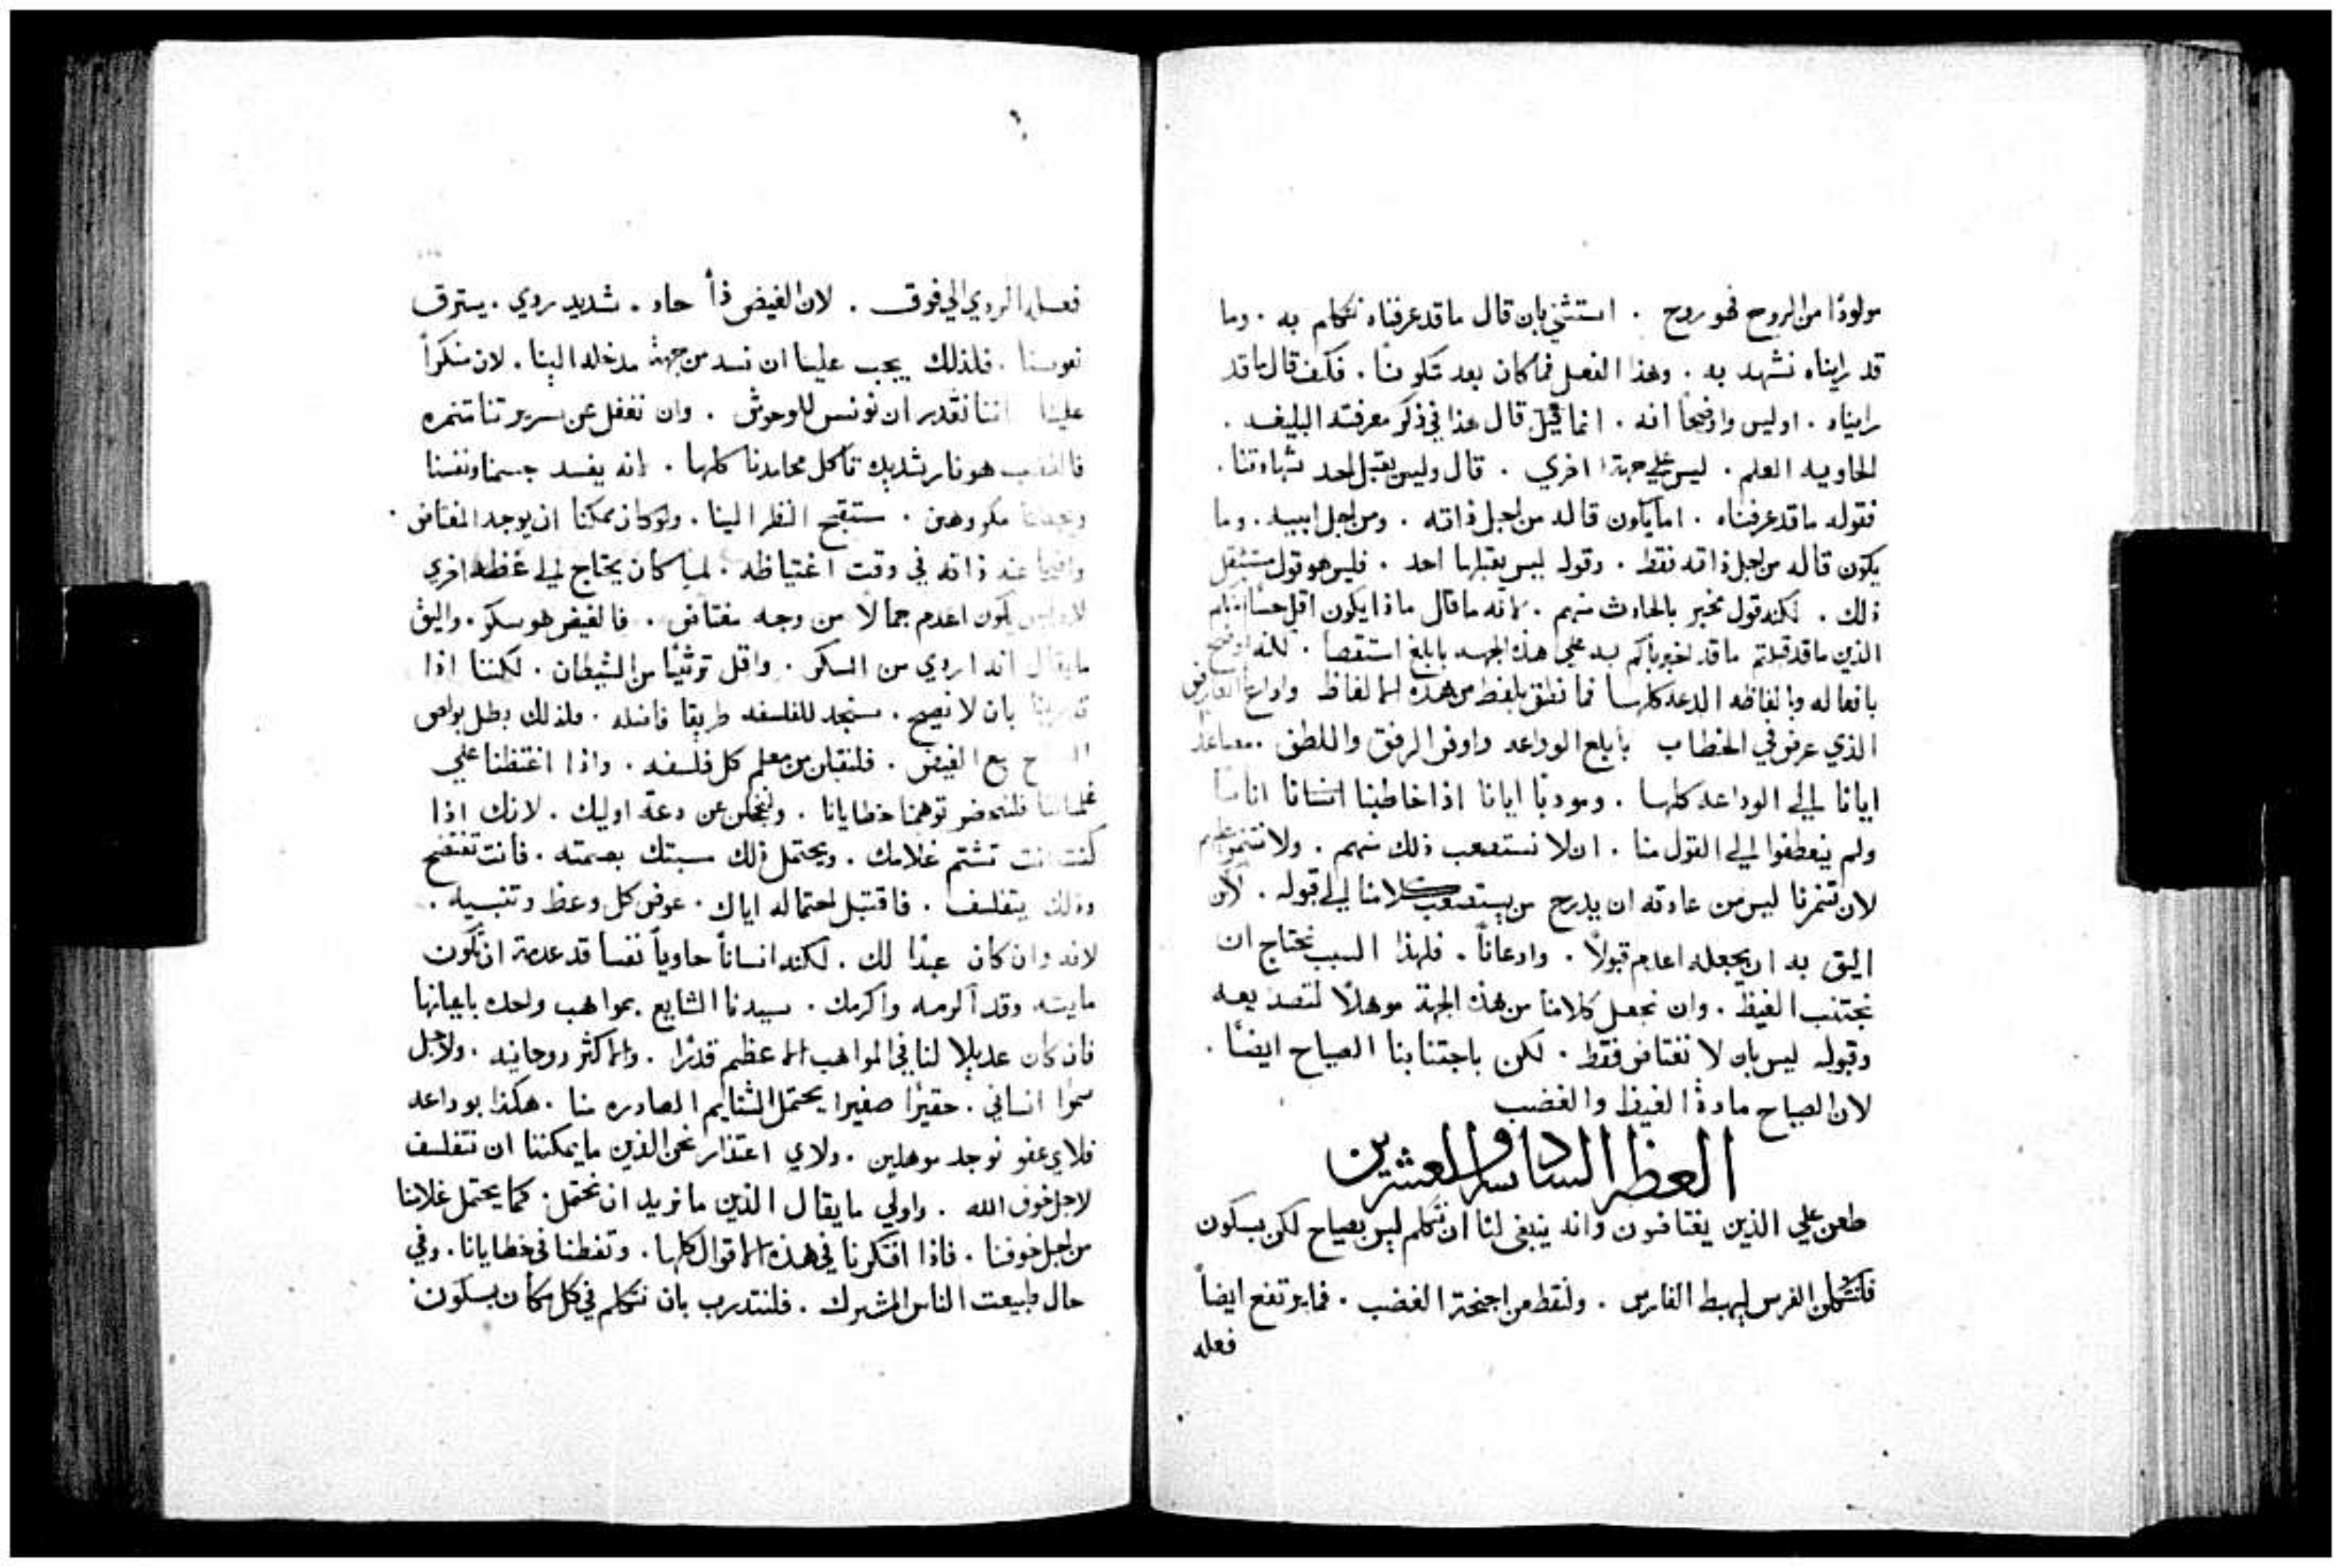 مولودًا من الروح فهو روح . استثني بان قال ما قد عرفناه نتكلم به . وما
قد رايناه نشهد به . وهذا الفعل فما كان بعد تكوننا . فكيف قال ما قد
رايناه . اوليس واضحًا انه . انما قيل قال هذا في ذكر معرفته البليغه .
الحاويه العلم . ليس علي جهة اخري . قال وليس يقبل احد شهادتنا .
فقوله ما قد عرفناه . اما يكون قاله من اجل ذاته . ومن اجل ابيه . وما
يكون قاله من اجل ذاته فقط . وقوله ليس يقبلها احد . فليس هو قول مستثقل
ذلك . لكنه قول مخبر بالحادث منهم . لانه ما قال ماذا يكون اقل حسًا
الذين ما قد قبلتم ما قد اخبرناكم به علي هذه الجهه بابلغ استقصا . لكنه اوضح
بافعاله وبالفاظه الدعه كلها فما نطق بلفظ من هذه الالفاظ واوداع
الذي عرفو في الخطاب بابلع الوداعه واوفر الرفق واللطف .
ايانا الي الوداعه كلها . ومودبا ايانا اذا خاطبنا انسانا اناسًا
ولم ينعطفوا الي القول منا . ان لا نستصعب ذلك منهم . ولا نتنمر عليهم
لان تنمرنا ليس من عادته ان يدرج من يستصعب كلامنا الي قبوله . لان
اليق به ان يجعله اعدم قبولاً . واذعاناً . فلهذا السبب نحتاج ان
نجتنب الغيظ . وان نجعل كلامنا من هذه الجهة موهلاً لتصديقه
وقبوله ليس بان لا نغتاض فقط . لكن باجتنابنا الصياح ايضًا .
لان الصياح مادة الغيظ والغضب
العظه السادسه والعشرين
طعن علي الذين يغتاضون وانه ينبغي لنا ان نتكلم ليس بصياح لكن بسكون
فلنشكلن الفرس ليهبط الفارس . ولنقطعن اجنحة الغضب . فما يرتفع ايضاً
فعله
فعله الردي الي فوق . لان الغيض دأ حاد . شديد ردي . يسترق
نفوسنا . فلذلك يجب علينا ان نسد من جهة مدخله الينا . لان منكراً
علينا اننا نقدر ان نونس للوحوش . وان نغفل عن سريرتنا متنمره
فالغضب هو نار شديده تاكل محامدنا كلها . لانه يفسد جسمنا ونفسنا
ويجعلنا مكروهين . ستقبح النظر الينا . ولو كان ممكنا ان يوجد المغتاض .
واقفا عند ذاته في وقت اغتياظه . لما كان يحتاج الي عظه اخري
لانه ليس يكون اعدم جمالاً من وجه مغتاض . فالغيض هو سكر . واليق
ما يقال انه اردي من السكر . واقل توثيًا من الشيطان . لكننا اذا
بان لا نصيح . سنجد للفلسفه طريقا فاضله . فلذلك بطل بولص
مع الغيض . فلنقبلن من معلم كل فلسفه . واذا اغتظنا علي
غلماننا توهمنا خطايانا . ولنخجلن من دعة اوليك . لانك اذا
كنت انت تشتم غلامك . ويحتمل ذلك سبتك بصمته . فانت تفتضح
وذلك يتفلسف . فاقتبل احتماله اياك . عوض كل وعظ وتنبيه .
لانه وان كان عبدًا لك . لكنه انسانًا حاوياً نفسا قد عدمت ان تكون
مايته وقد اكرمه واكرمك . سيدنا الشايع بمواهب واحده باعيانها
فان كان عديلا لنا في المواهب الاعظم قدرًا . والاكثر روحانيه . ولاجل
سموا انساني . حقيرًا صغيرا يحتمل الشتايم الصادره منا . هكذا بوداعه
فلاي عفو نوجد موهلين . ولاي اعتذار نحن الذين ما يمكننا ان نتفلسف
لاجل خوف الله . واولي ما يقال الذين ما نريد ان نحتمل كما يحتمل غلامنا
من اجل خوفنا . فاذا افتكرنا في هذه الاقوال كلها . وتفطنا في خطايانا . وفي
حال طبيعت الناس المشترك . فلنتدرب بان نتكلم في كل مكان بسكون